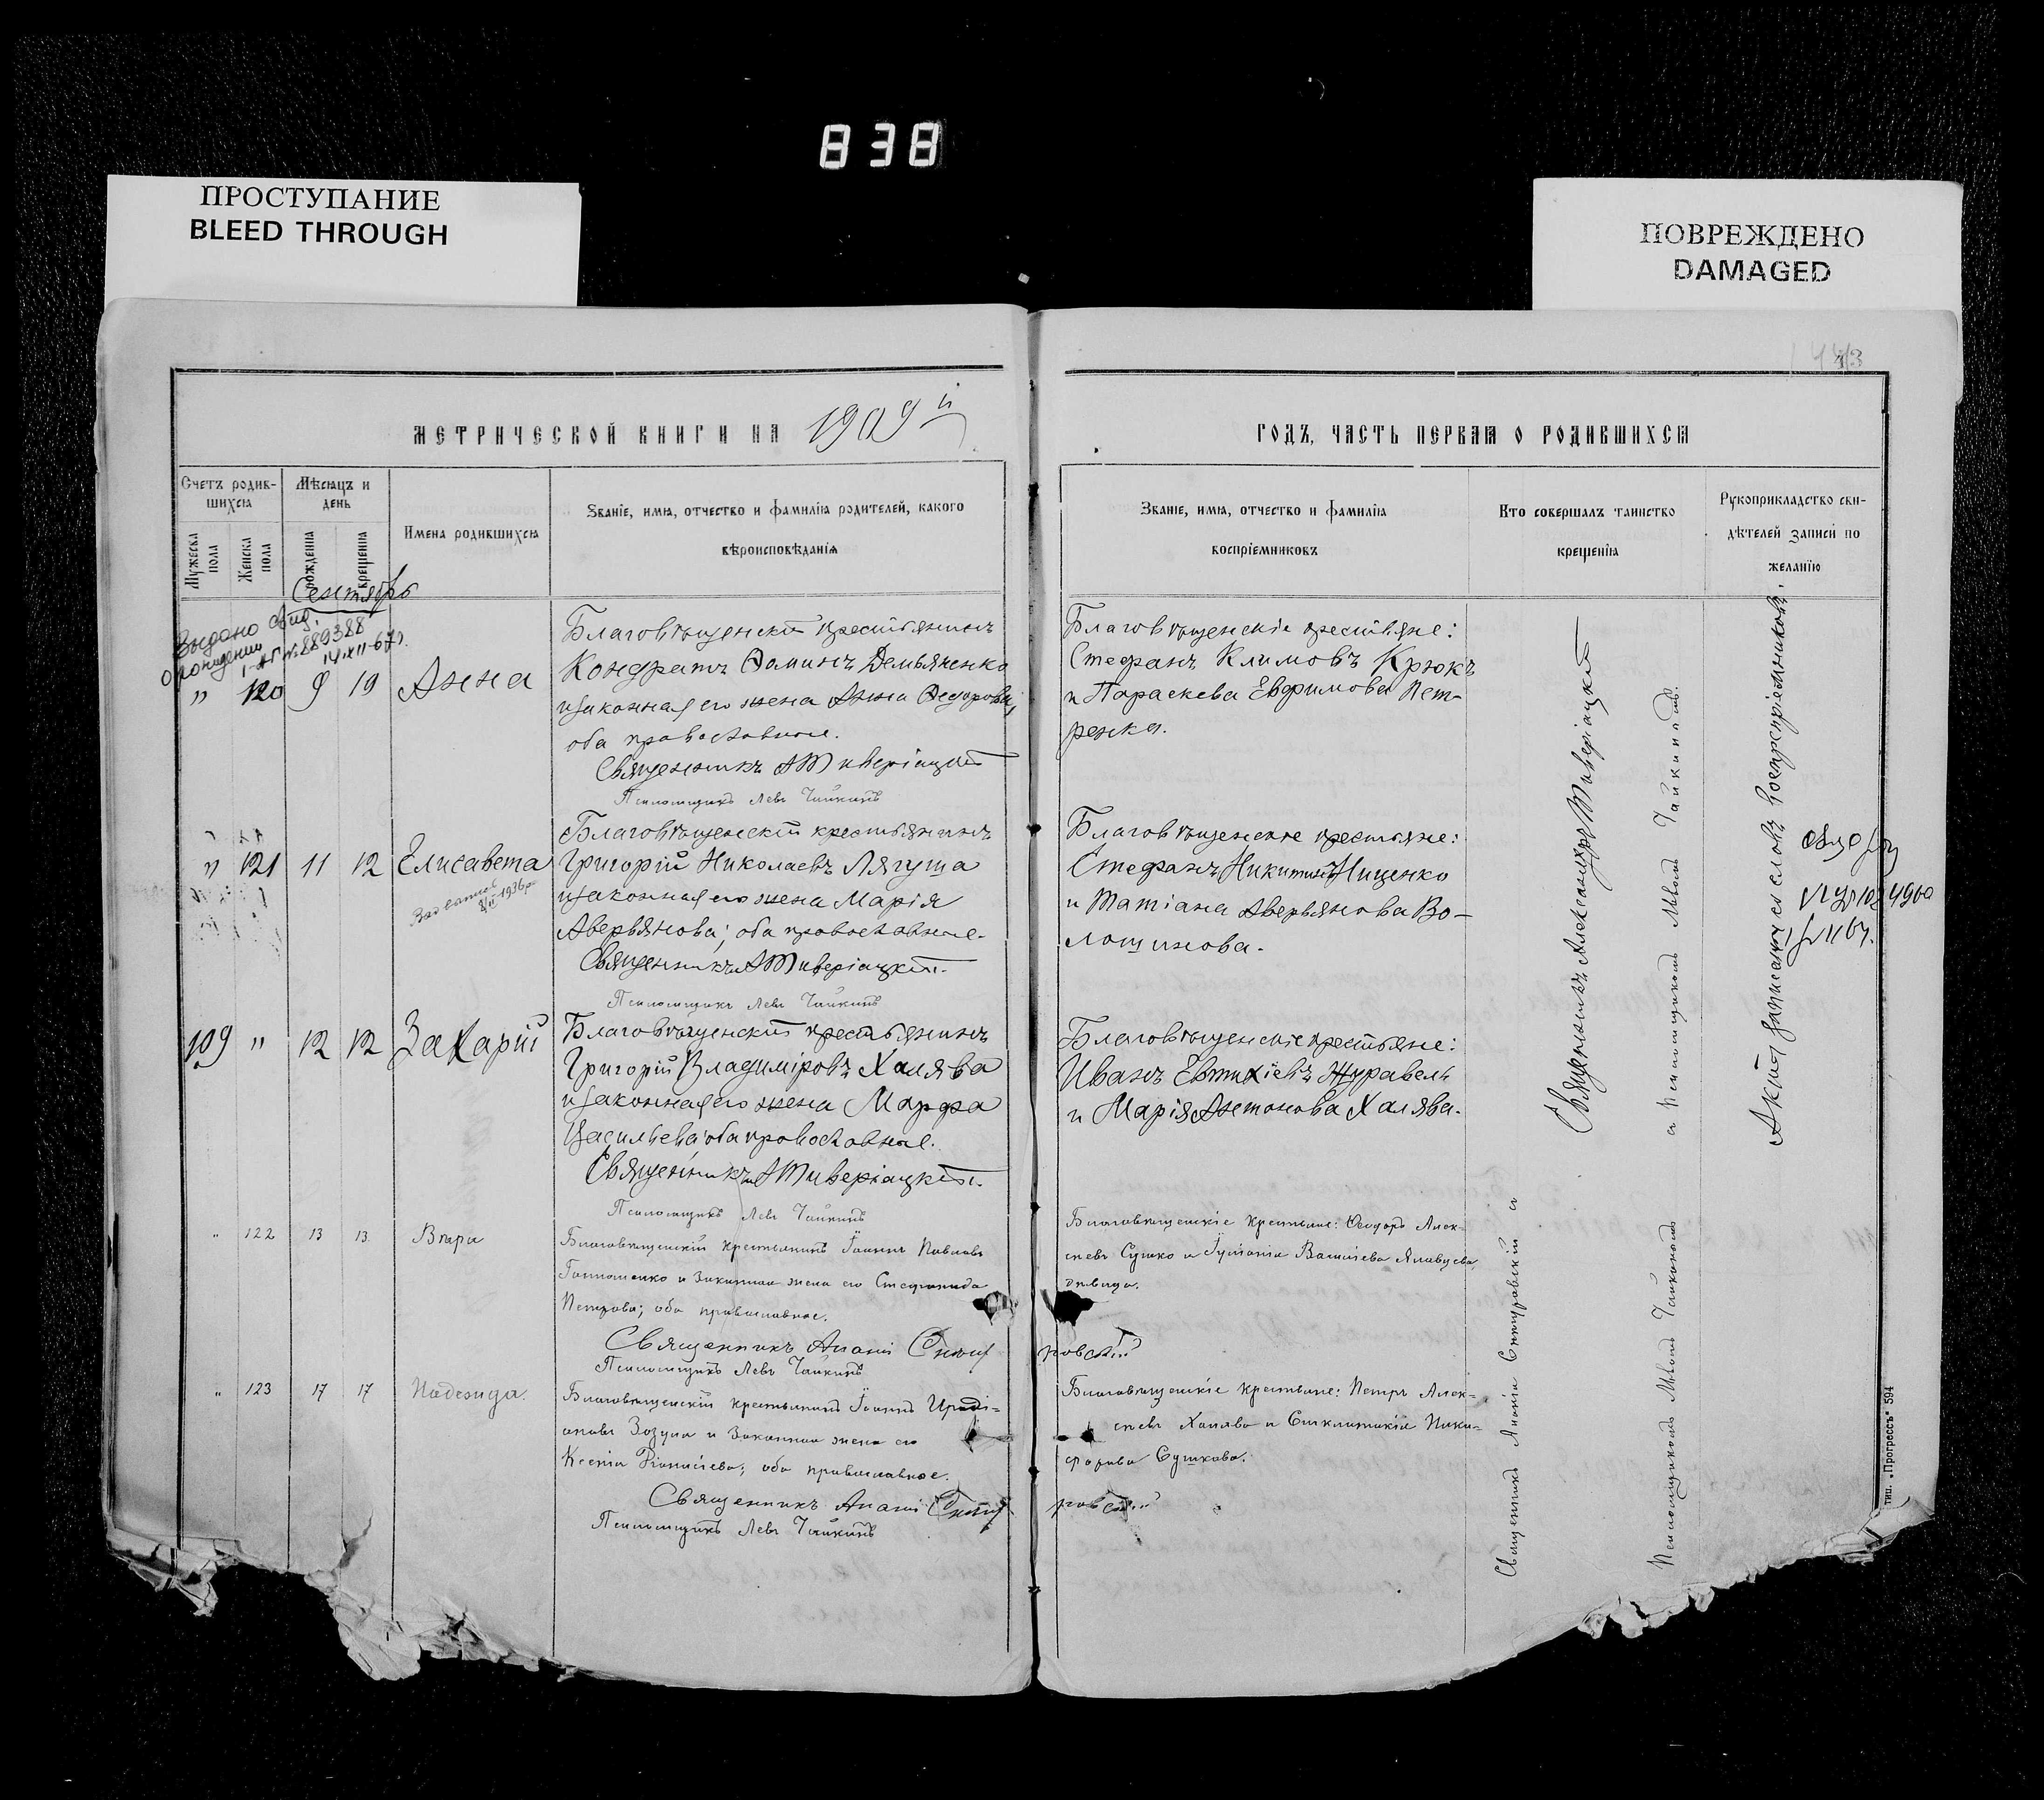 838
ПРОСТУПАНИЕ
BLEED THROUGH
ПОВРЕЖДЕНО
DAMAGED
МЕТРИЧЕСКОЙ КНИГИ НА 1909й
Счетъ родив-
шихся
Мѣсяцъ и
день
Мужеска
пола
Женска
пола
рожденія
крещенія
Имена родившихся
Званіе, имя, отчество и фамилія родителей, какого
вѣроисповѣданія
Сентябрь
Выдано свид.
о рождении
1-АГ №889388
14.XII-67г.
" 120 9 19 Анна
Благовѣщенскій крестьянинъ
Кондратъ Ѳоминъ Демьяненко
и законная его жена Анна Ѳедорова,
оба православные.
Священникъ А Тиверіацкій
Псаломщикъ Левъ Чайкинъ
" 121 11 12 Елисавета
1936р
Благовѣщенскій крестьянинъ
Григорій Николаевъ Лягуша
и законная его жена Марія
Аверьянова; оба православные.
Священникъ А Тиверіацкій.
Псаломщикъ Левъ Чайкинъ
109 " 12 12 Захарій
Благовѣщенскій крестьянинъ
Григорій Владиміровъ Халява
и законная его жена Марфа
Васильева оба православные.
Священникъ А Тиверіацкій.
Псаломщикъ Левъ Чайкинъ
" 122 13 13 Вѣра
Благовѣщенскій крестьянинъ Іоаннъ Павловъ
и законная жена его Стефанида
Петрова; оба православные.
Священникъ Ананій
Псаломщикъ Левъ Чайкинъ
" 123 17 17 Надежда.
Благовѣщенскій крестьянинъ Іоаннъ Иради-
оновъ Зозуля и законная жена его
Ксенія Діонисіева; оба православные.
Священникъ Ананій
Псаломщикъ Левъ Чайкинъ
ГОДЪ, ЧАСТЬ ПЕРВАЯ О РОДИВШИХСЯ
Званіе, имя, отчество и фамилія
воспріемниковъ
Кто совершалъ таинство
крещенія
Рукоприкладство сви-
дѣтелей записи по
желанію
Благовѣщенскіе крестьяне:
Стефанъ Климовъ Крюкъ
и Параскева Евфимова Пет-
ренко.
Благовѣщенскіе крестьяне:
Стефанъ Никитинъ Ниценко
и Татіана Аверьянова Во-
лошинова.
Благовѣщенскіе крестьяне:
Иванъ Евтихіевъ Журавель
и Марія Антонова Халява.
Благовѣщенскіе крестьяне: Ѳеодоръ Алек-
сѣевъ Сушко и Васильева
дѣвица.
Благовѣщенскіе крестьяне: Петръ Алек-
сѣевъ Халява и Синклитикія Ники-
форова Сушкова.
Священникъ Александръ Тиверіацкій
съ псаломщикомъ Львомъ Чайкинымъ.
Священникъ Ананій съ
Псаломщикомъ Львомъ Чайкинымъ
Актъ записанъ со словъ воспріемниковъ.
тип. „Прогрессъ" 594